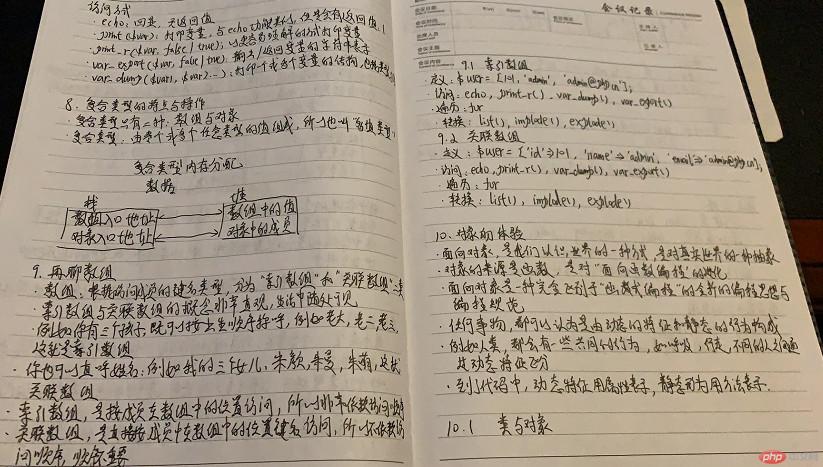 访问方式
· echo: 回显, 无返回值
· print($var): 打印变量, 与echo功能类似, 但是会有返回值: 1
· print_r($var, false | true): 以更容易理解的方式打印变量
· var_export($var, false | true): 输出/返回变量的字符串表示
· var_dump($var1, $var2...): 打印一个或多个变量的结构,
8. 复合类型的特点与操作
· 复合类型只有二种, 数组与对象
· 复合类型: 由零个或多个任意类型的值组成, 所以也叫"多值类型"
复合类型内存分配
数据
栈 堆
数组入口地址 数组中的值
对象入口地址 对象中的成员
9. 再聊数组
· 数组: 根据访问成员的键名类型, 分为"索引数组"和"关联数组"二类
· 索引数组与关联数组的概念非常直观, 生活中随处可见
· 例如你有三个孩子, 既可以按出生顺序称呼, 例如老大, 老二, 老三,
这就是索引数组
· 你也可以直呼姓名: 例如我的三个女儿, 朱颜, 朱曼, 朱萌, 这就
关联数组
· 索引数组, 是按成员在数组中的位置访问, 所以非常依赖访问
· 关联数组, 是直接按成员中在数组中的位置键名访问, 所以不依赖访
问顺序,
会议记录
会议日期
会议时间
出席人员
会议主题
会议内容
9.1 索引数组
· 定义: $user = [101, 'admin', 'admin@php.cn'];
· 访问: echo, print_r(), var_dump(), var_export()
· 遍历: for
· 转换: list(), implode(), explode()
9.2 关联数组
· 定义: $user = ['id'=>101, 'name'=>'admin', 'email'=>'admin@php.cn'];
· 访问: echo, print_r(), var_dump(), var_export()
· 遍历: for
· 转换: list(), implode(), explode()
10. 对象初体验
· 面向对象, 是我们认识世界的一种方式, 是对真实世界的一种抽象
· 对象的来源是函数, 是对"面向函数编程"的
· 面向对象是一种完全区别于"函数式编程"的全新的编程思想与
编程规范
· 任何事物, 都可以认为是由动态的特征和静态的行为构成
· 例如人类, 都会有一些共同的行为, 如呼吸, 行走, 不同的人之间通
过动态特征区分
· 到了代码中, 动态特征用属性表示, 静态行为用方法表示
10.1 类与对象
php